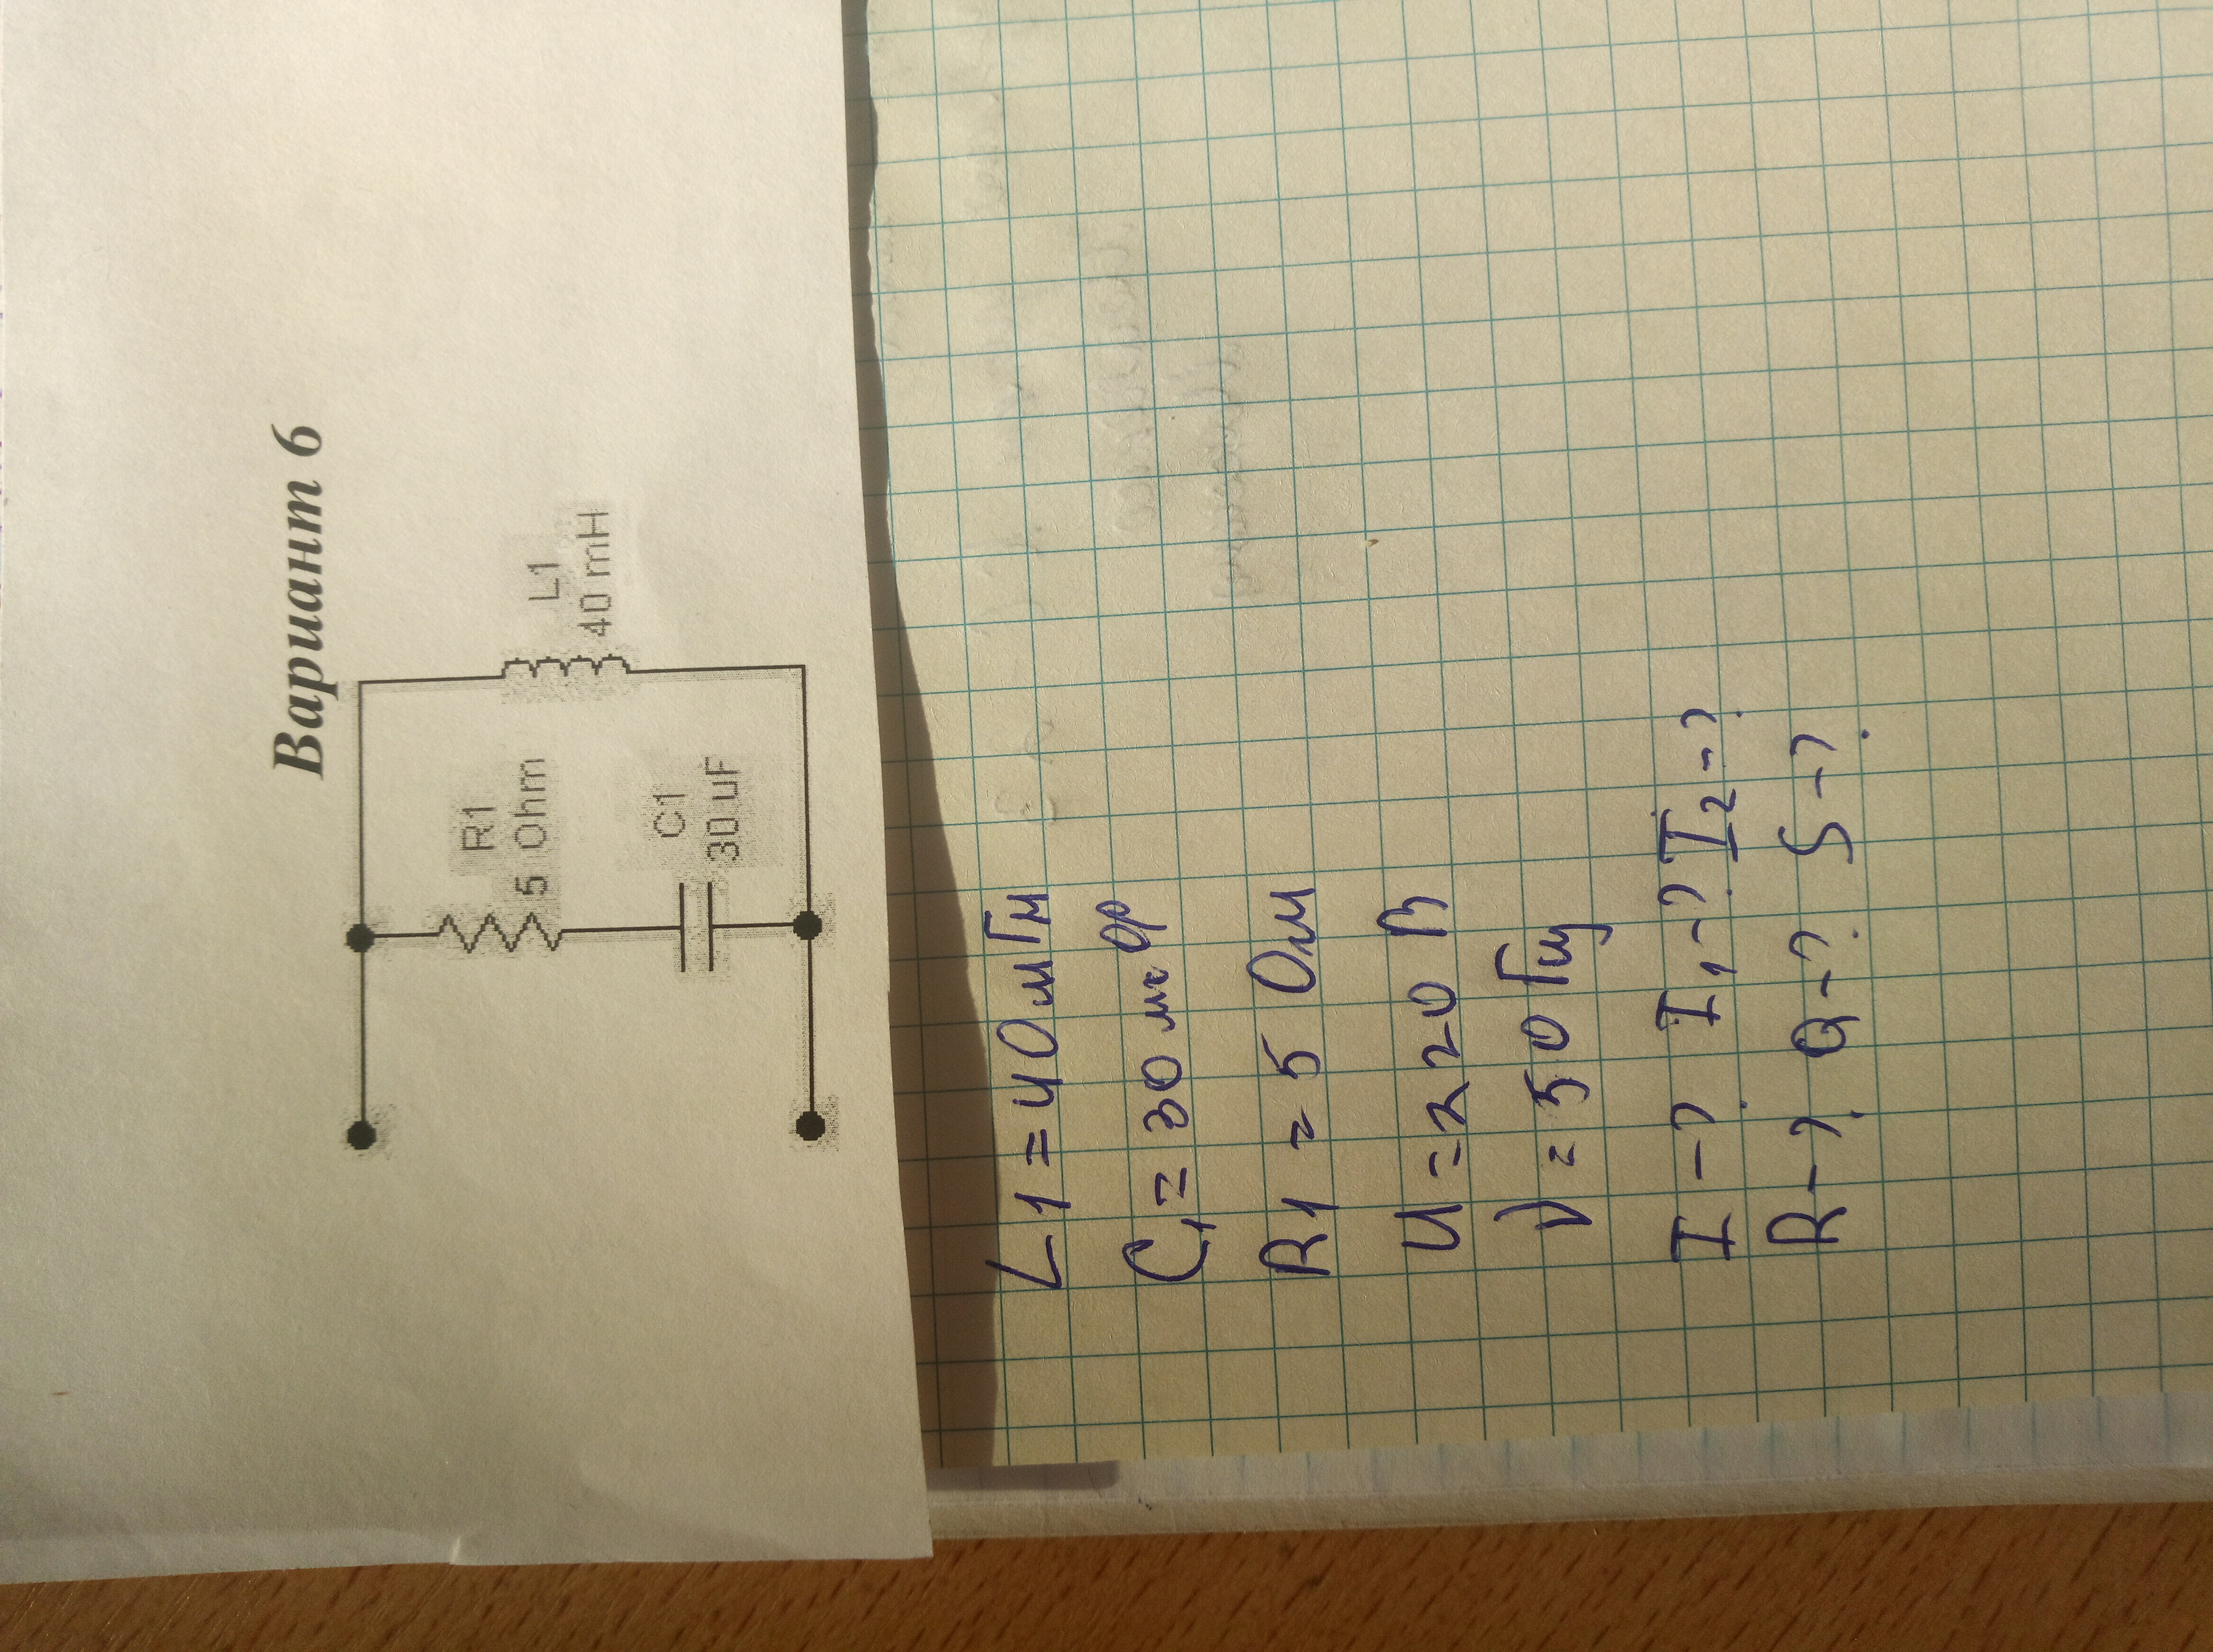 Вариант 6
R1
5 Ohm
L1
40 mH
C1
30 uF
L1 = 40 мГн
C1 = 30 мк Ф
R1 = 5 Ом
U = 220 В
ν = 50 Гц
I - ? I1 - ? I2 - ?
R - ? Q - ? S - ?